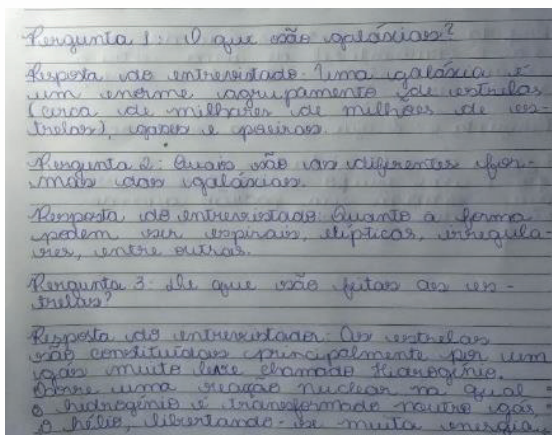 Pergunta 1: O que são galáxias?
Resposta do entrevistado: Uma galáxia é
um enorme agrupamento de estrelas
(cerca de milhares de milhões de es-
trelas), gases e poeiras.
Pergunta 2: Quais são as diferentes for-
mas das galáxias.
Resposta do entrevistado: Quanto a forma
podem ser espirais, elípticas, irregula-
res, entre outras.
Pergunta 3: De que são feitas as es-
trelas?
Resposta do entrevistador: As estrelas
são constituídas principalmente por um
gás muito leve chamado Hidrogênio.
Ocorre uma reação nuclear na qual
o hidrogênio é transformado noutro gás,
o hélio, libertando-se muita energia.